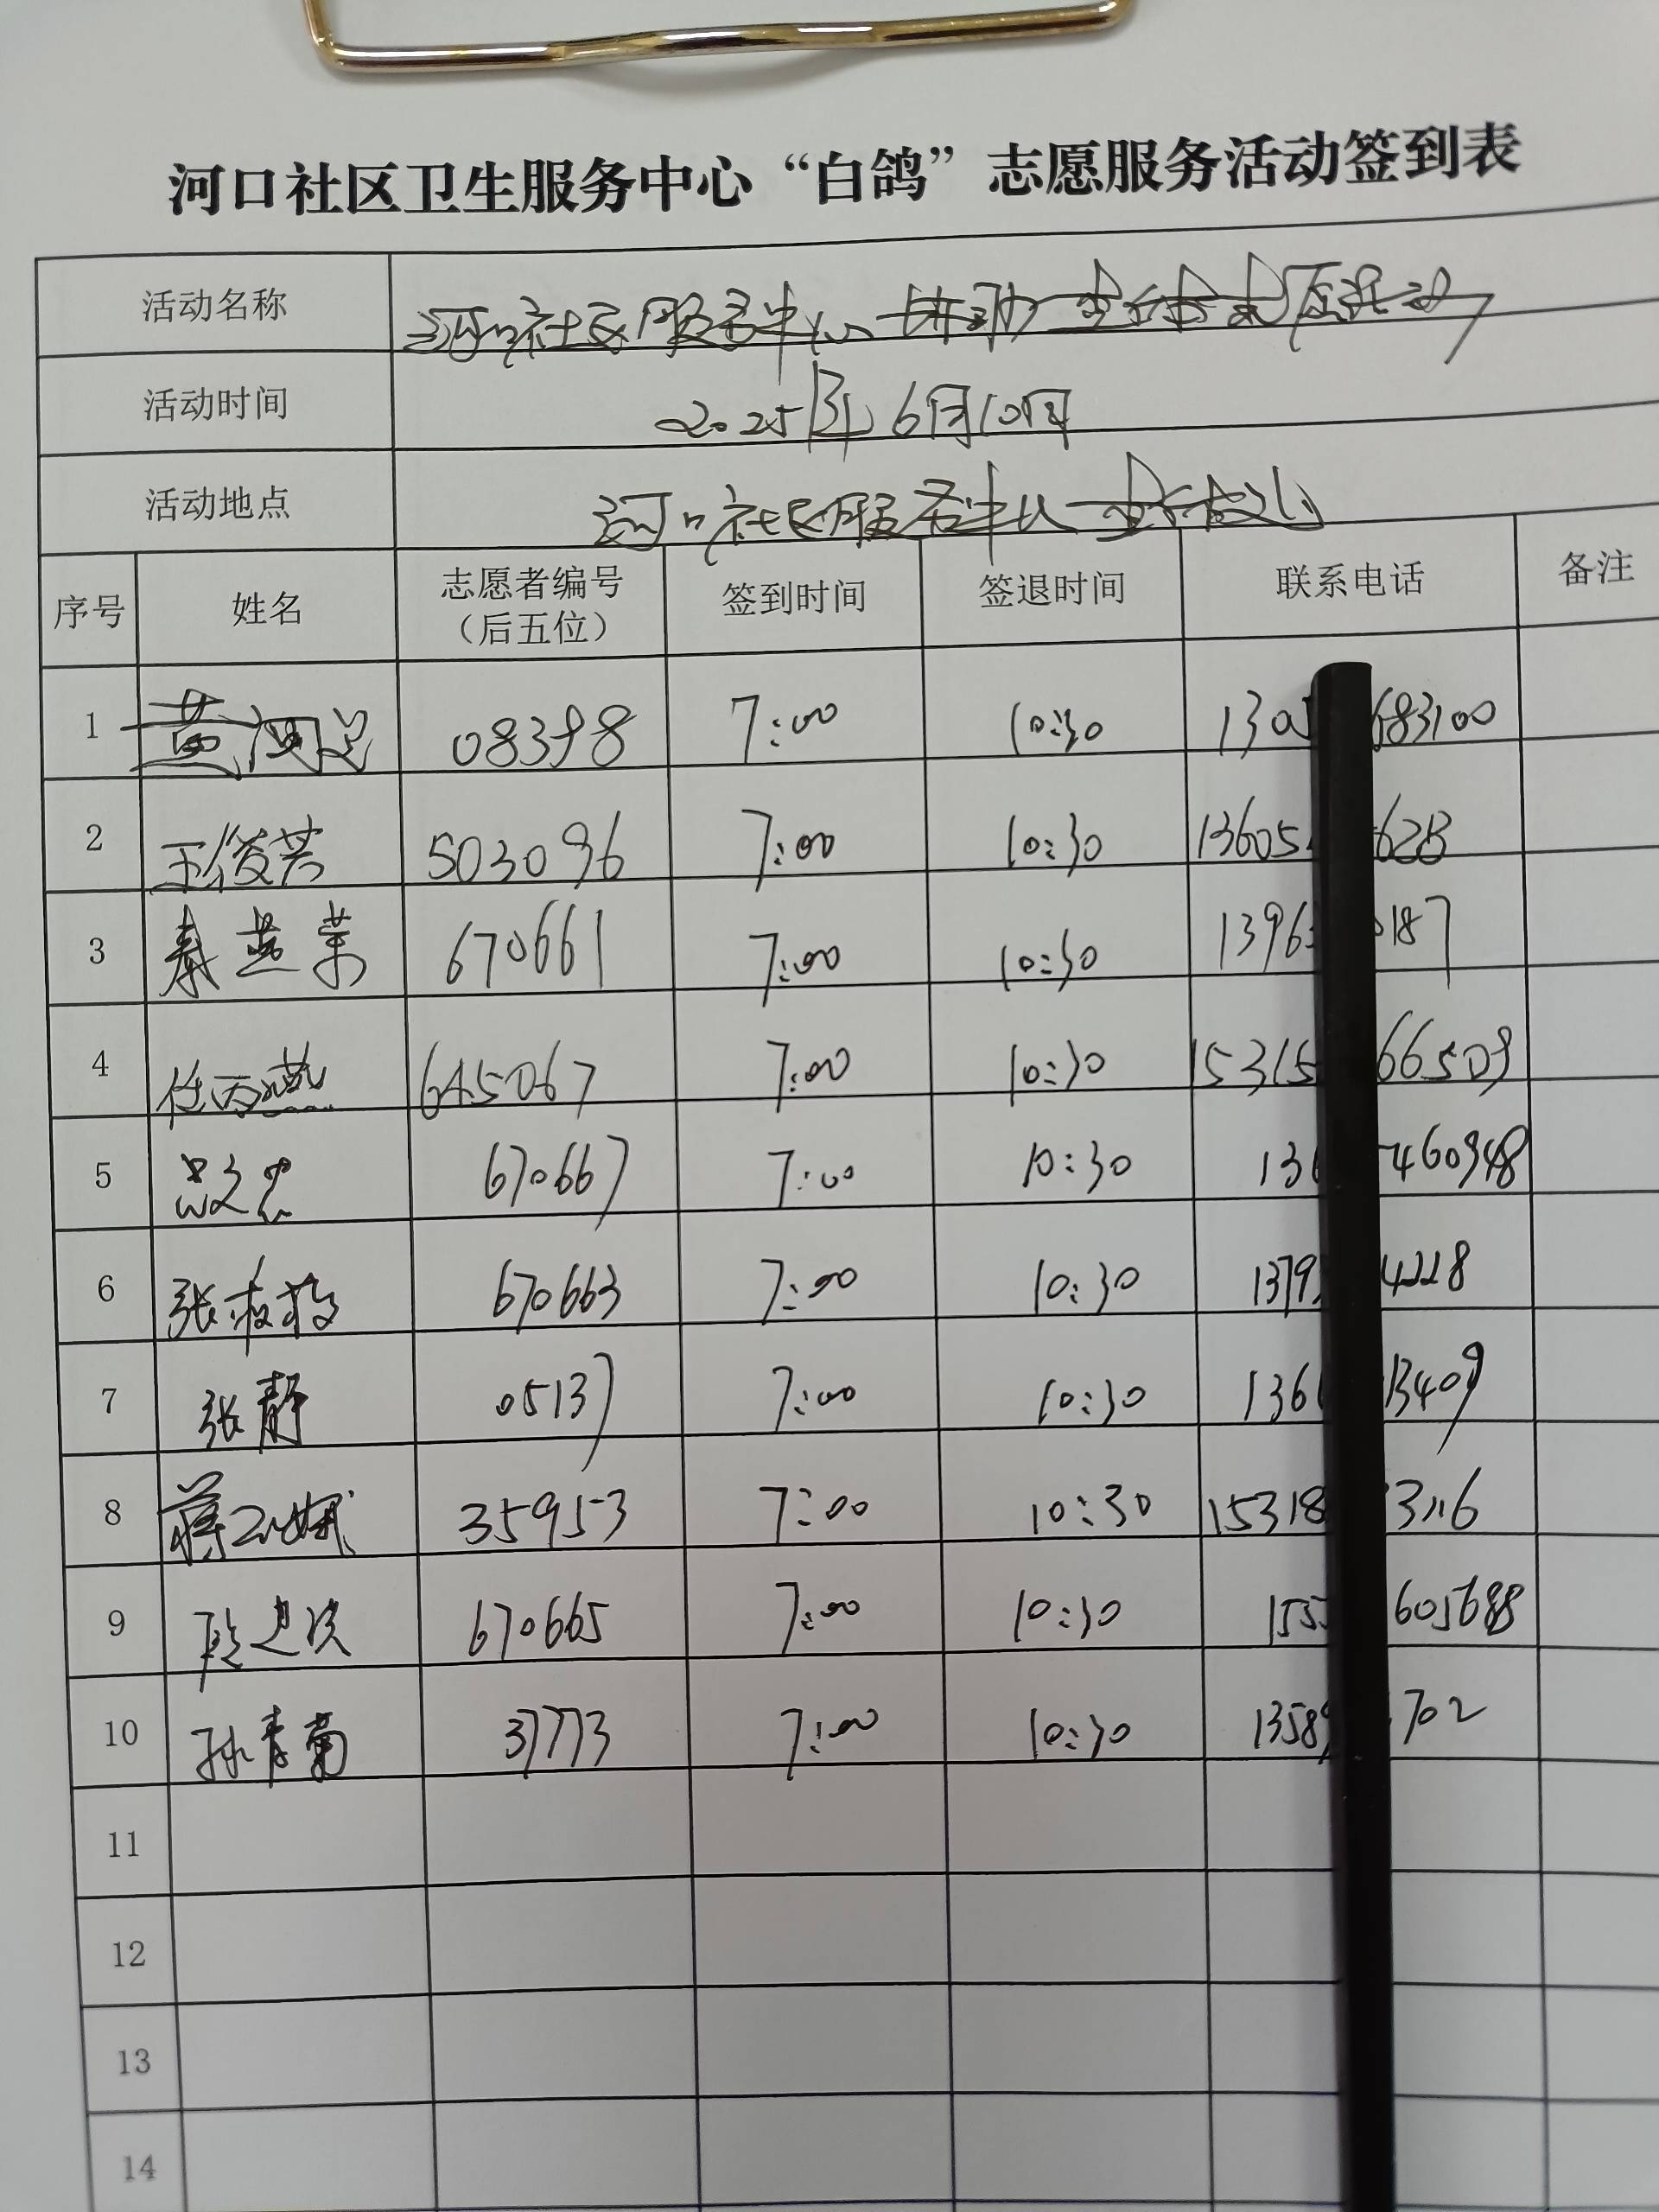 河口社区卫生服务中心“白鸽”志愿服务活动签到表
活动名称 河口社区服务中心
活动时间 2025年6月10日
活动地点 河口社区服务中心
序号 姓名 志愿者编号（后五位） 签到时间 签退时间 联系电话 备注
1 08398 7:00 10:30 130 683100
2 王俊芳 503096 7:00 10:30 13605 628
3 秦燕荣 670661 7:00 10:30 1396 0187
4 任丙燕 645067 7:00 10:30 15315 66509
5 670667 7:00 10:30 136 460948
6 张 670663 7:00 10:30 1379 4228
7 张静 05137 7:00 10:30 136 13409
8 蒋 35953 7:00 10:30 15318 3116
9 段 670665 7:00 10:30 155 605688
10 孙青菊 37773 7:00 10:30 1358 702
11
12
13
14